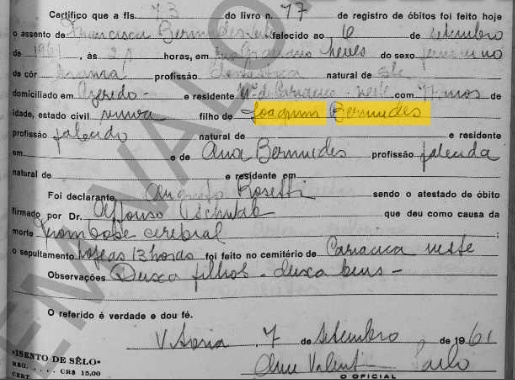 Certifico que a fls 73 do livro n. 77 de registro de óbitos foi feito hoje
o assento de Francisca Bermudes falecido ao 6 de setembro
de 1961, às horas, em neste do sexo feminino
de côr profissão Doméstica natural de
domiciliado em e residente neste com 77 anos de
idade, estado civil viuva filho de Joaquim Bermudes
profissão falecido natural de e residente
em e de Ana Bermudes profissão falecida
natural de e residente em
Foi declarante, Augusto Rosetti sendo o atestado de óbito
firmado por Dr. Affonso Schwab que deu como causa da
morte Trombose cerebral
o sepultamento hoje as 13 horas foi feito no cemitério de Cariacica neste
Observações Deixa filhos - deixa bens -
O referido é verdade e dou fé.
Vitoria, 7 de setembro de 1961
*ISENTO DE SÊLO*
REG. . . . . CR$ 15,00
CERT.
O OFICIAL